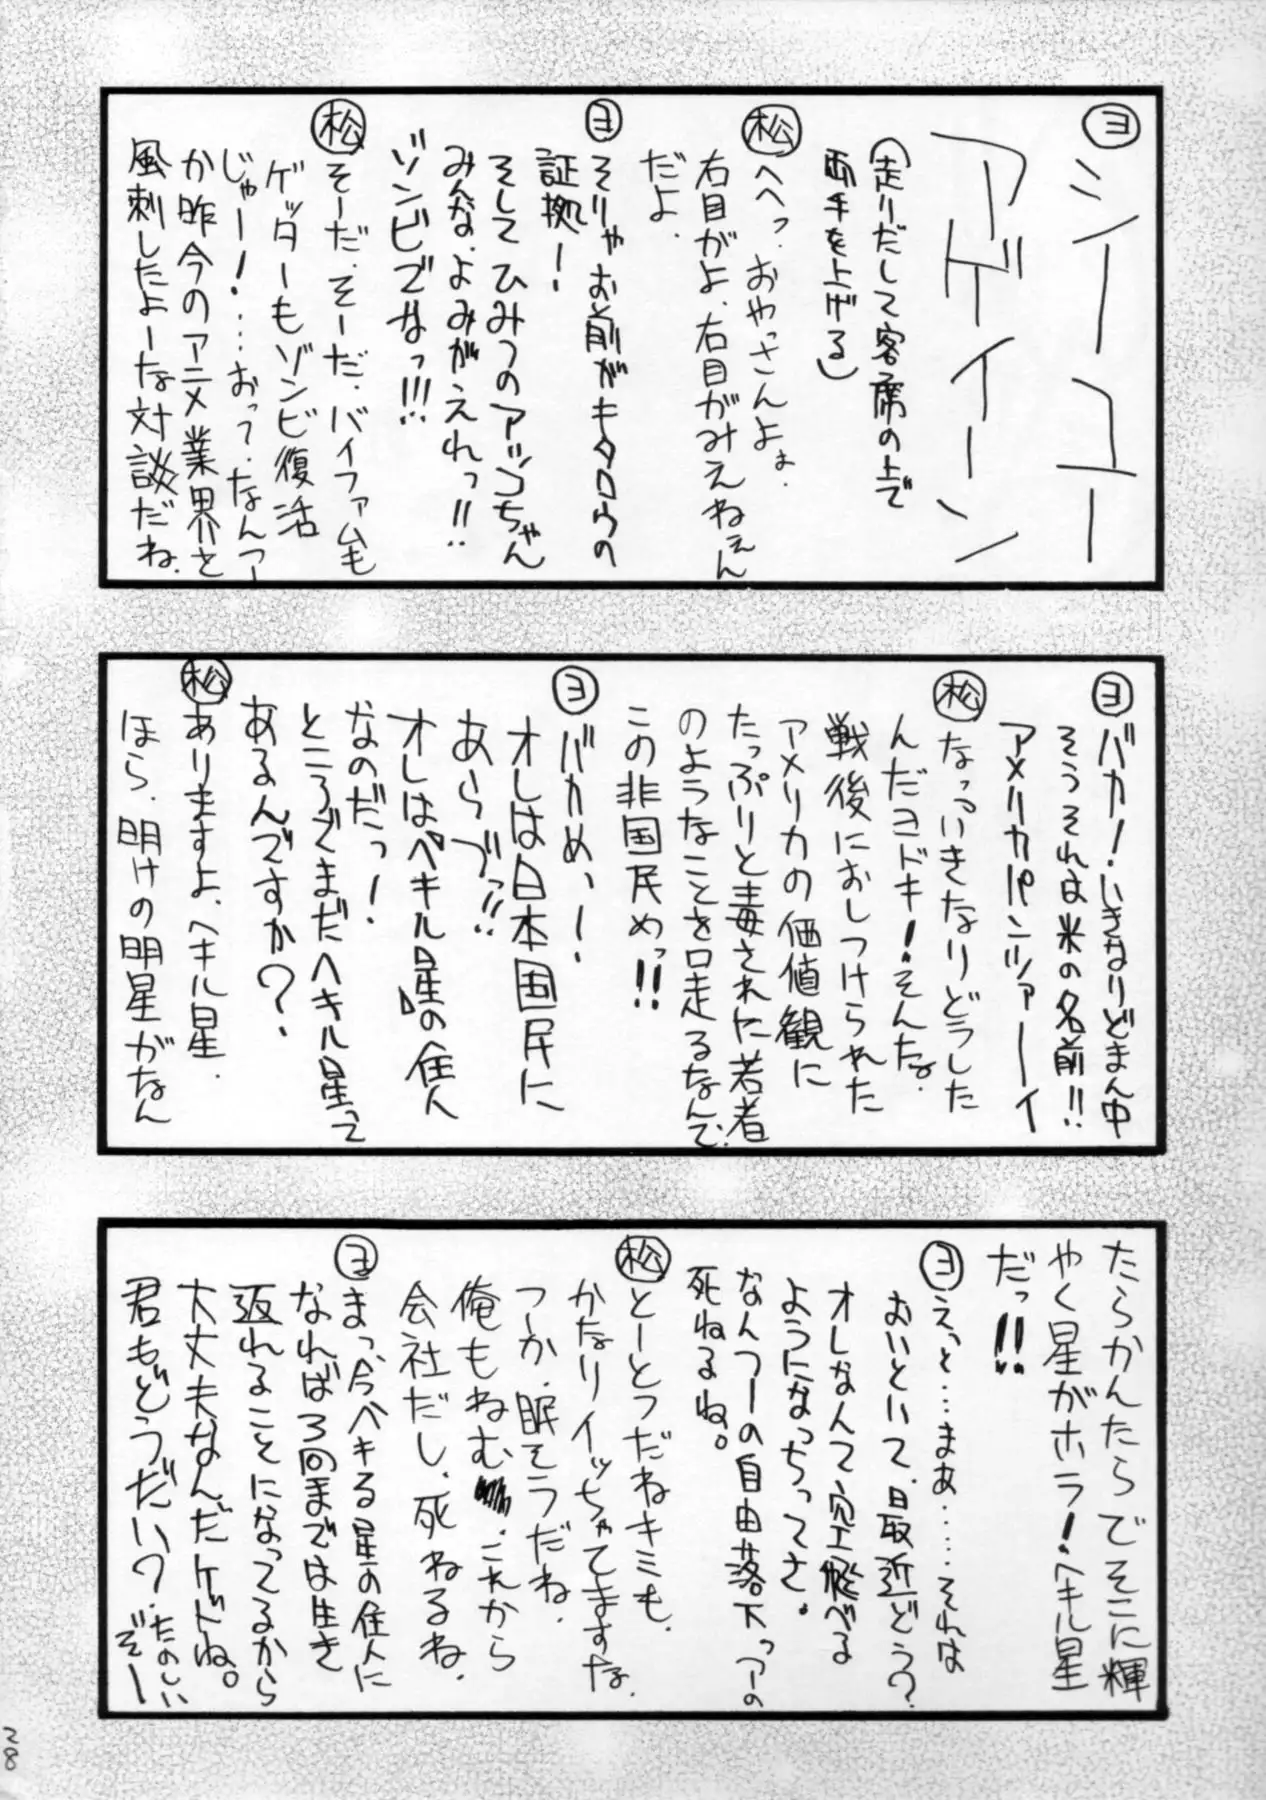 ヨ
シーユー
アゲイン
(走りだして客席の上で
両手を上げる)
松
へへっ、おやっさんよぉ
右目がよ、右目がみえねぇん
だよ、
ヨ
そりゃお前がキタロウの
証拠ー!
そしてひみつのアッコちゃん
みんな、よみがえれっ!!
ゾンビでなっ!!!
松
そーだ、そーだ、バイファムも
ゲッターもゾンビ復活
じゃー!…おって、なんつー
か昨今のアニメ業界を
風刺したよーな対談だね、
ヨ
バカ!いきなりどまん中
そうそれは米の名前!!
アメリカパンツァーイ
松
なっ、いきなりどうした
んだヨドキ!そんな、
戦後におしつけられた
アメリカの価値観に
たっぷりと毒された若者
のようなことを口走るなんて、
この非国民めっ!!
ヨ
バカめっ!
オレは日本国民に
あらブっ!!
オレは「ペキル星」の住人
なのだっ!
ところでまだヘキル星って
あるんですか?、
松
ありますよ、ヘキル星、
ほら、明けの明星がなん
たらかんたらでそこに輝
やく星がホラ!ヘキル星
だっ!!
ヨ
えっと…まあ……それは
おいといて、最近どう?
オレなんて空飛べる
ようになっちってさ。
なんつーの自由落下っつーの
死ねるね。
松
とーとつだねキミも、
かなりイッちゃてますな、
つーか、眠そうだね、
俺もねむ、これから
会社だし、死ねるね、
ヨ
まっ、今ペキる星の住人に
なれば3回までは生き
返れることになってるから
大丈夫なんだケドね。
君もどうだい?、たのしい
ぞー
28